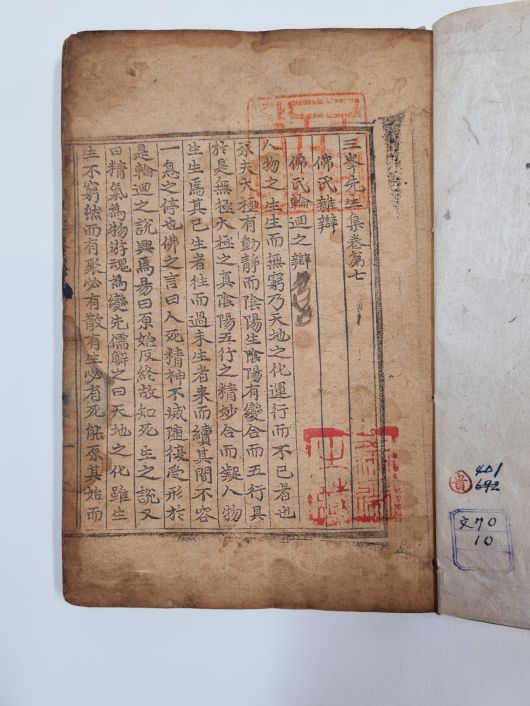 三峯先生集卷苐七
佛氏雜辯
佛氏輪廻之辯
人物之生生而無窮乃天地之化運行而不已者也
原夫太極有動靜而陰陽生陰陽有變合而五行具
於是無極太極之真陰陽五行之精妙合而凝人物
生生焉其已生者往而過未生者來而續其間不容
一息之停也佛之言曰人死精神不滅隨復受形於
是輪廻之說興焉易曰原始反終故知死生之說又
曰精氣為物游魂為變先儒解之曰天地之化雖生
生不窮然而有聚必有散有生必有死能原其始而
貴
692
文70
10